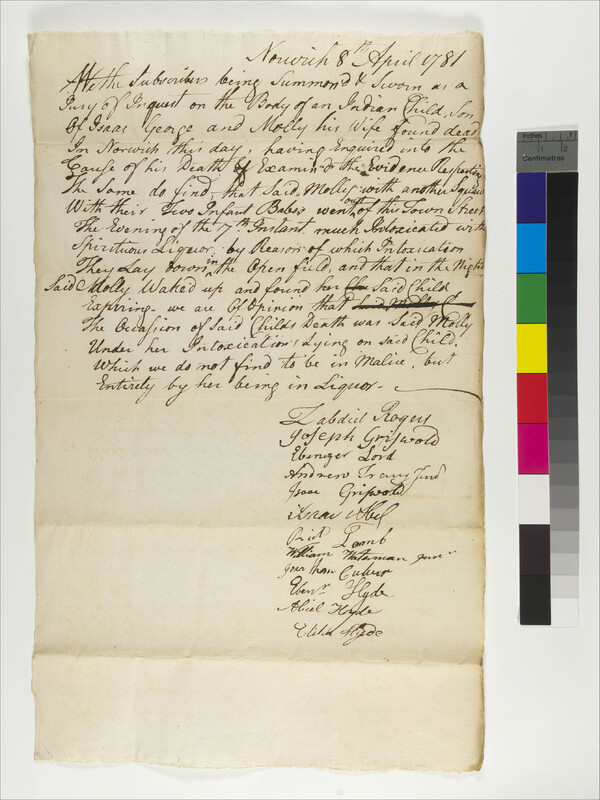 Norwich 8th April 1781
We the Subscribers being Summond & Sworn as a
Jury of Inquest on the Body of an Indian Child, Son
Of Isaac George and Molly his Wife found dead
In Norwich this day, having Enquired into the
Cause of his Death & Examin'd the Evidence Respecting
The Same do find, that Said Molly with another Squaw
With their Two Infant Babes went out of this Town Street
The Evening of the 7th Instant, much Intoxicated with
Spirituous Liquor, by Reason of which Intoxication
They Lay down in the Open field, and that in the Night
Said Molly Waked up and found her Said Child
Expiring. we are Of Opinion that
The Occasion of Said Childs Death was Said Molly
Under her Intoxication Lying on Said Child,
Which we do not find to be in Malice, but
Entirely by her being in Liquor.
Zabdiel Rogers
Joseph Griswold
Ebenezer Lord
Andrew Tracy Jund
Isaac Griswold
Isaac Abel
Lamb
William Waterman Junr
Jonathan Culver
Ebenr Hyde
Abiel Hyde
Elisha Hyde
Inches 1 2
Centimetres